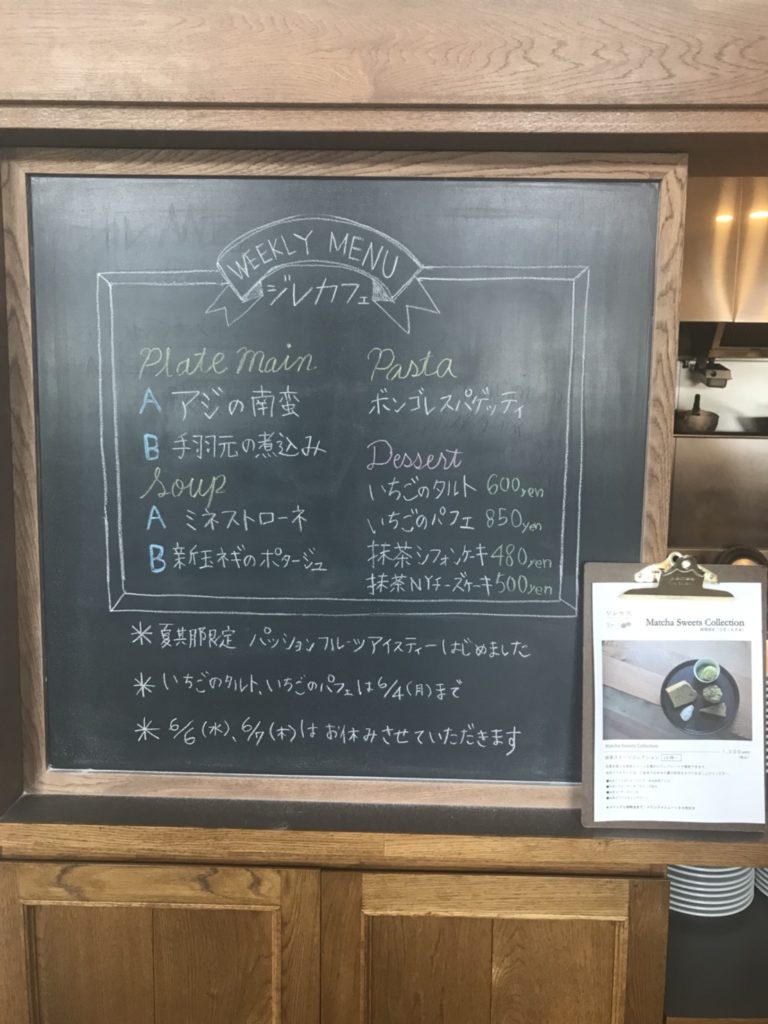 WEEKLY MENU
ジレカフェ
Plate Main
A アジの南蛮
B 手羽元の煮込み
Soup
A ミネストローネ
B 新玉ネギのポタージュ
Pasta
ボンゴレスパゲッティ
Dessert
いちごのタルト 600yen
いちごのパフェ 850yen
抹茶シフォンケーキ 480yen
抹茶NYチーズケーキ 500yen
＊夏期限定 パッションフルーツアイスティーはじめました
＊いちごのタルト、いちごのパフェは6/4(月)まで
＊6/6(水)、6/7(木)はお休みさせていただきます
Matcha Sweets Collection
Matcha Sweets Collection
抹茶スイーツコレクション